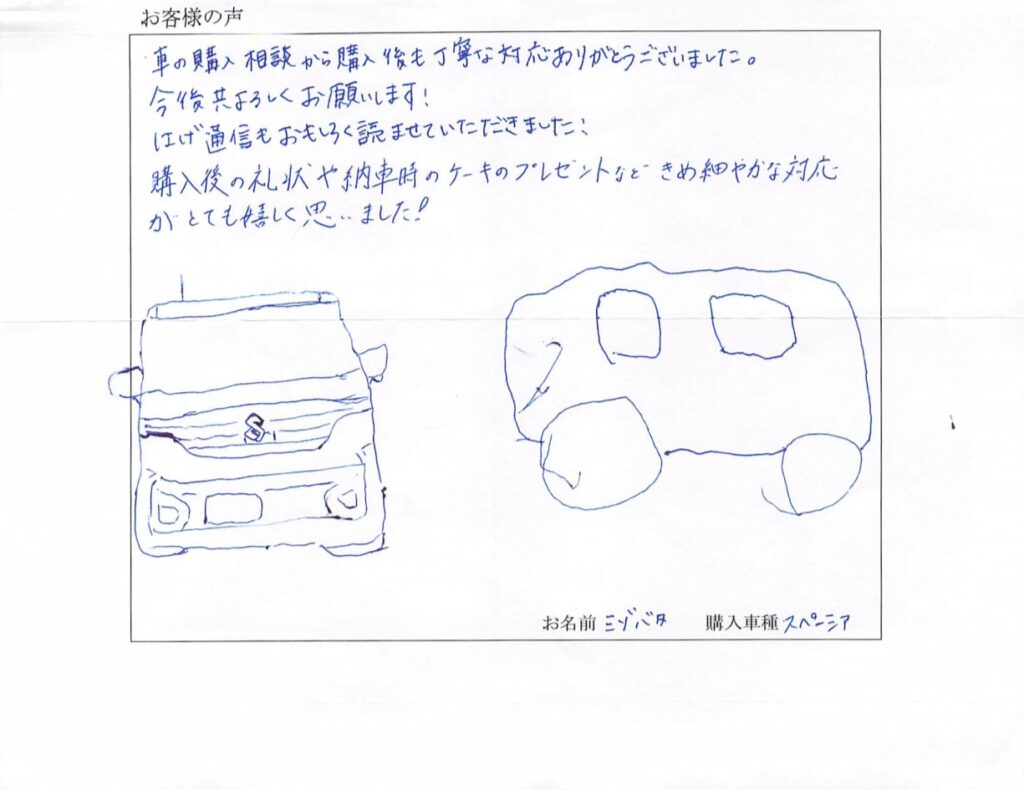 お客様の声
車の購入相談から購入後も丁寧な対応ありがとうございました。
今後共よろしくお願いします!
はげ通信もおもしろく読ませていただきました!
購入後の礼状や納車時のケーキのプレゼントなどきめ細やかな対応
がとても嬉しく思いました!
S
お名前 ミゾバタ 購入車種 スペーシア